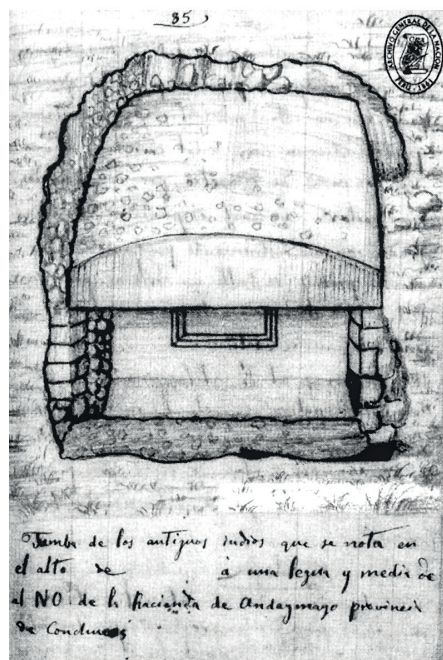 85
ARCHIVO CENTRAL DE LA NACION
PERU - 1861
Tumba de los antiguos indios que se nota en
el alto de á una legua y media de
al NO de la hacienda de Andaymayo provincia
de Conchucos